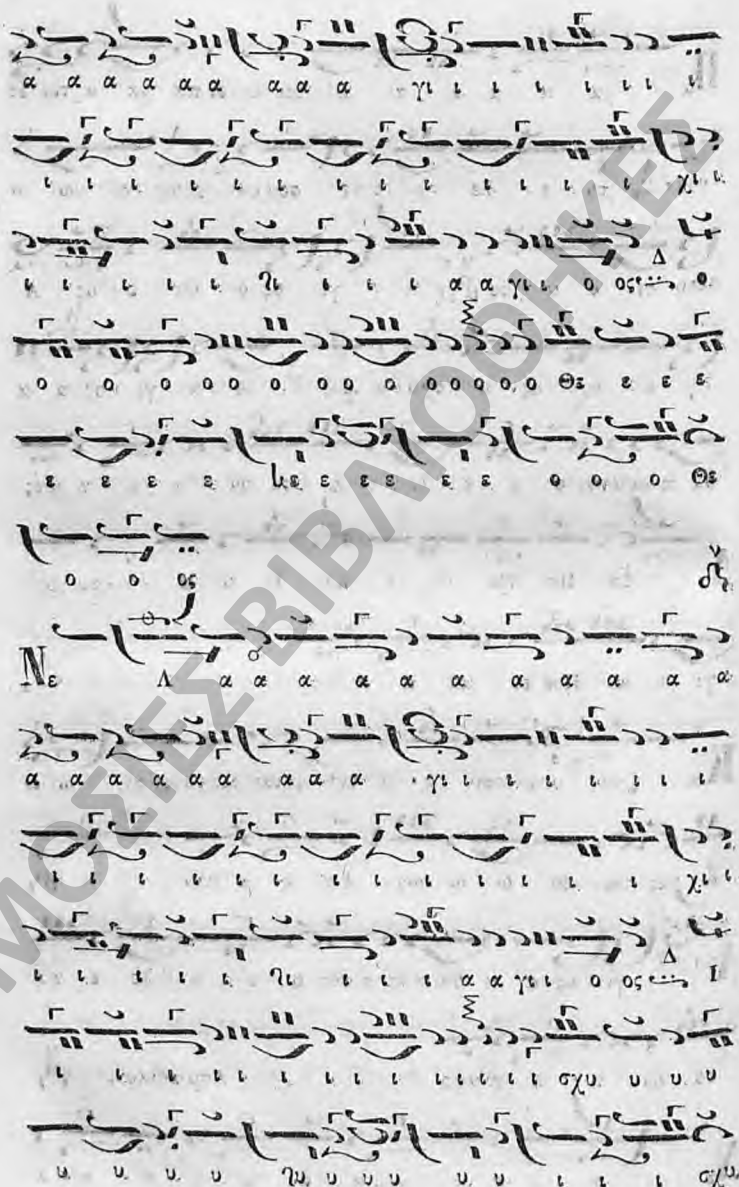 α α α α α α α α α γι ι ι ι ι ι ι ι
ι ι ι ι ι ι ι ι ι ι ι ι χι ι
ι ι ι ι ι ι ι ι ι α α γι ι ο ος Δ ο
ο ο ο ο ο ο ο ο ο ο ο ο ο ο Θε ε ε ε
ε ε ε ε ε ε ε ε ε ε ο ο ο Θε
ο ο ος
Νε Α α α α α α α α α α α
α α α α α α α α α γι ι ι ι ι ι ι ι
ι ι ι ι ι ι ι ι ι ι ι ι χι ι
ι ι ι ι ι ι ι ι α α γι ι ο ος Δ Ι
ι ι ι ι ι ι ι ι ι ι ι ι ι ι σχυ υ υ υ υ
υ υ υ υ υ υ υ υ υ υ ι ι ι σχυ
ΜΟΣΙΕΣ ΒΙΒΛΙΟΘΗΚΕΣ